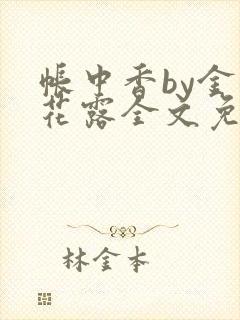 帐中香by金
花露全文免
林金本